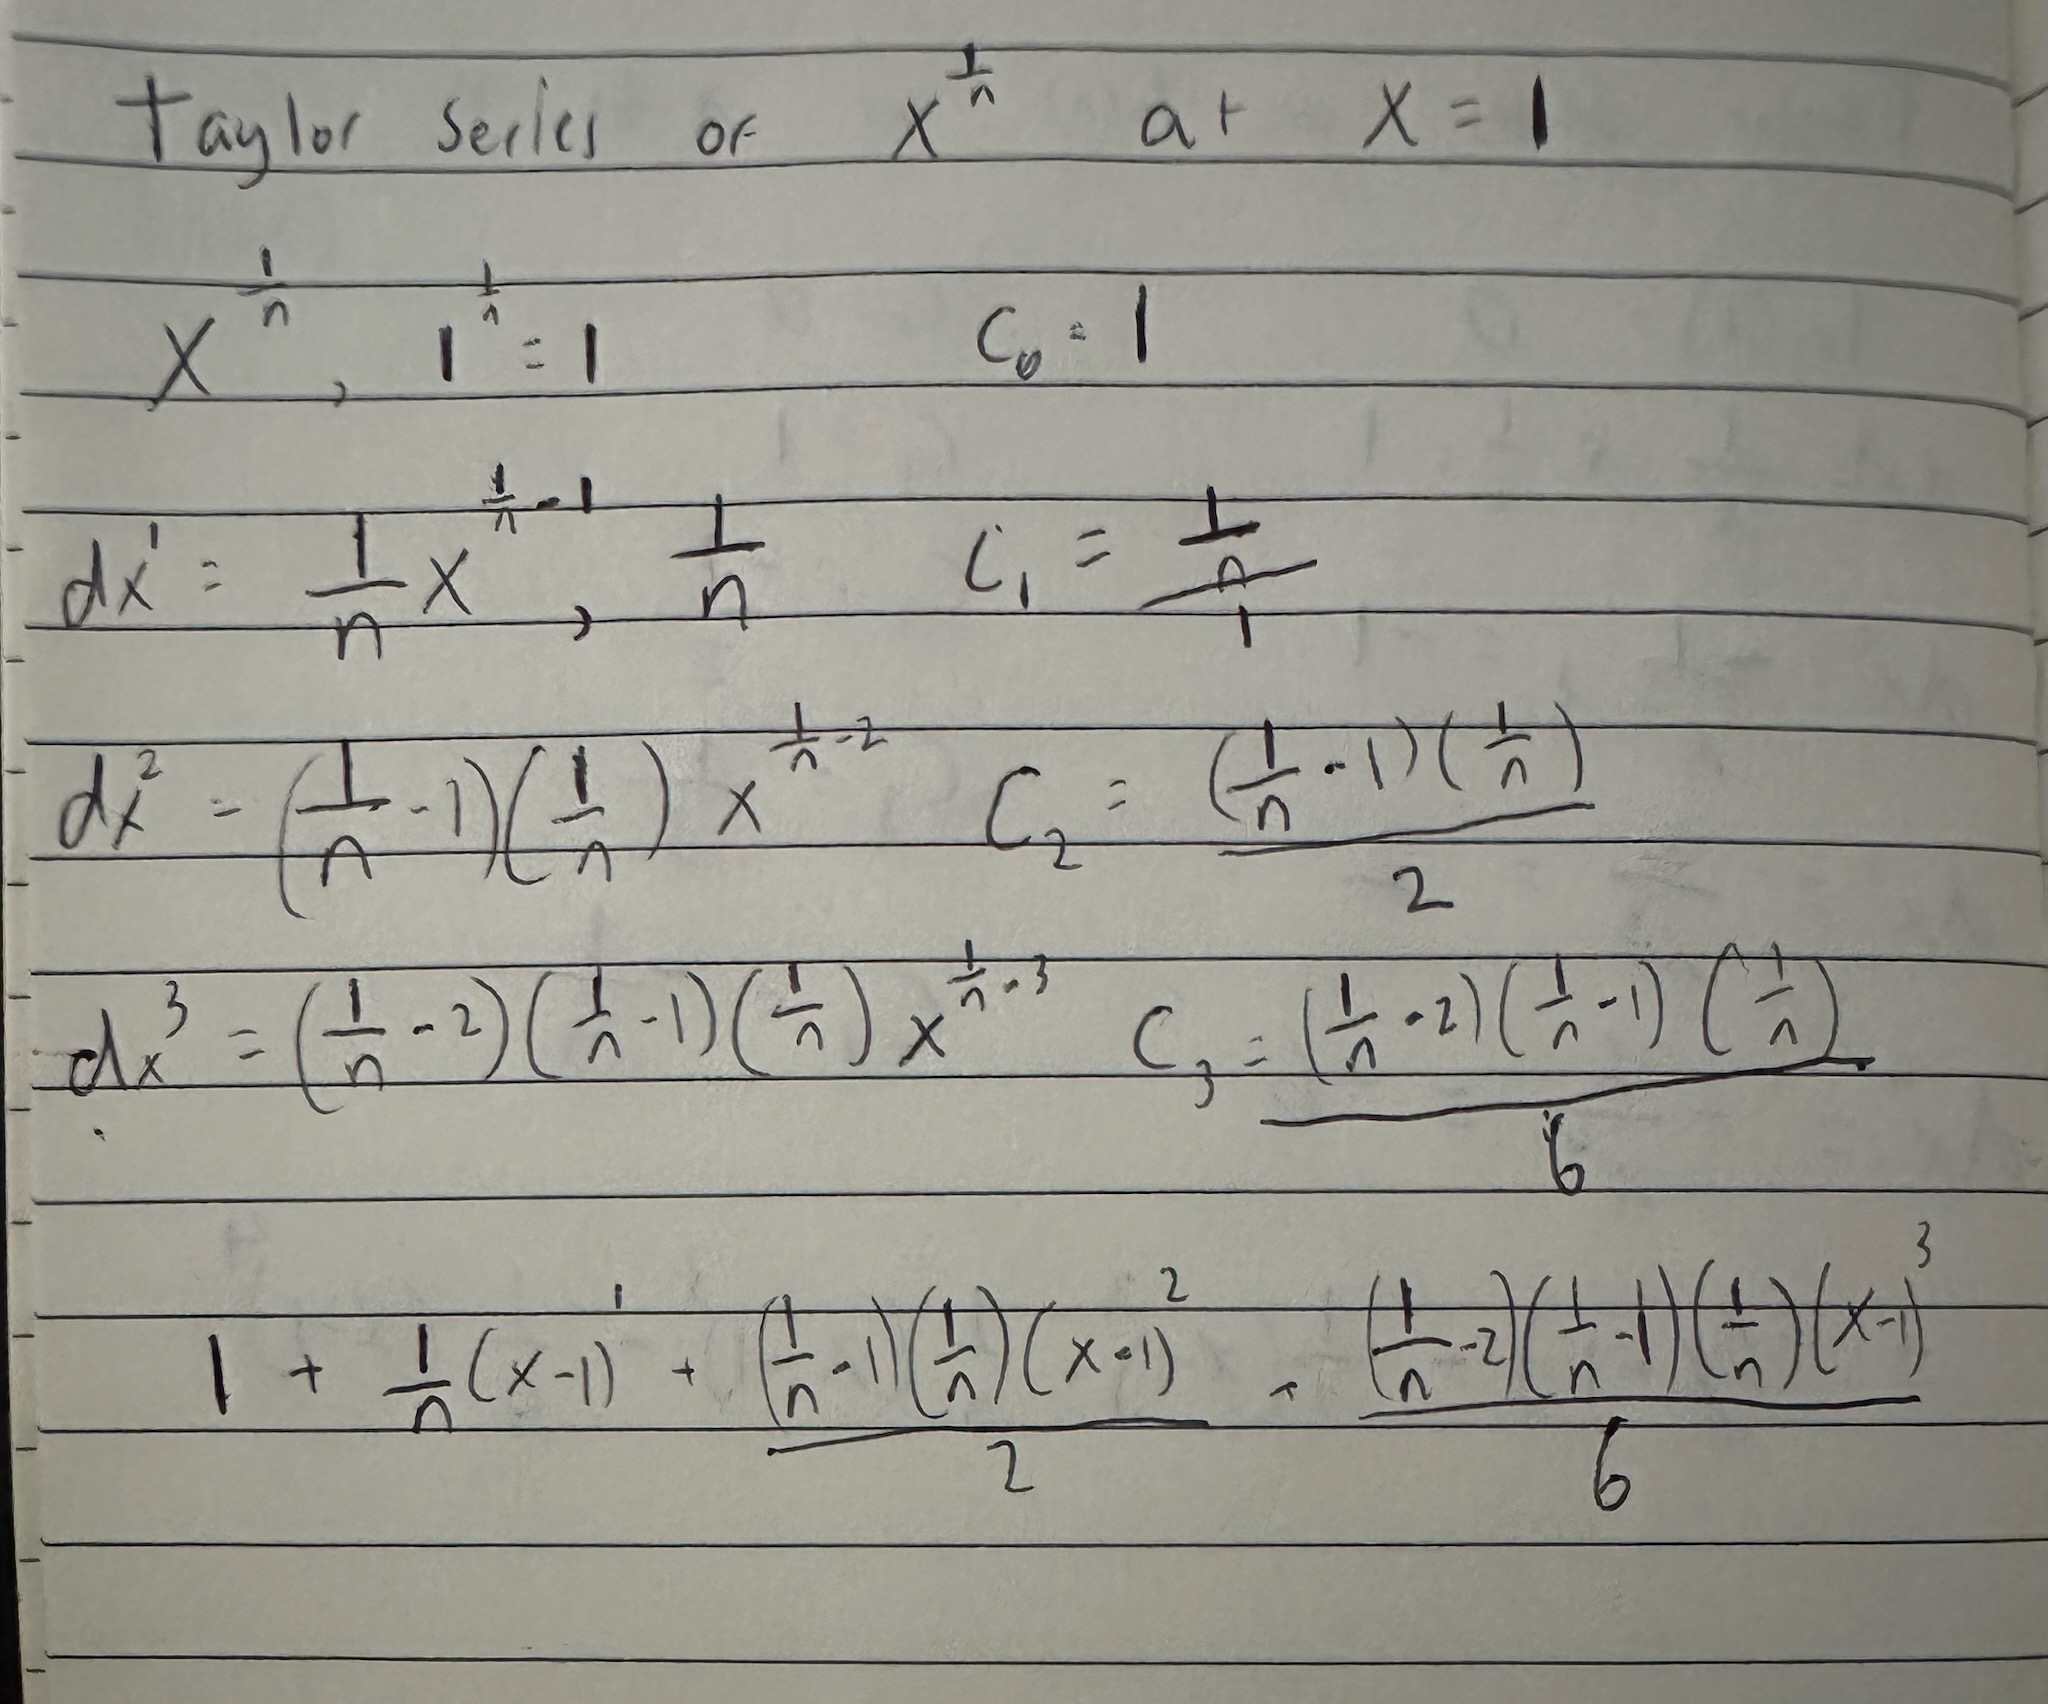 Taylor series of x^(1/n) at x = 1
x^(1/n), 1^(1/n) = 1 C₀ = 1
dx¹ = 1/n x^(1/n - 1), 1/n C₁ = (1/n)/1
dx² = (1/n - 1)(1/n) x^(1/n - 2) C₂ = (1/n - 1)(1/n)/2
dx³ = (1/n - 2)(1/n - 1)(1/n) x^(1/n - 3) C₃ = (1/n - 2)(1/n - 1)(1/n)/6
1 + 1/n (x-1)¹ + (1/n - 1)(1/n)(x-1)²/2 + (1/n - 2)(1/n - 1)(1/n)(x-1)³/6